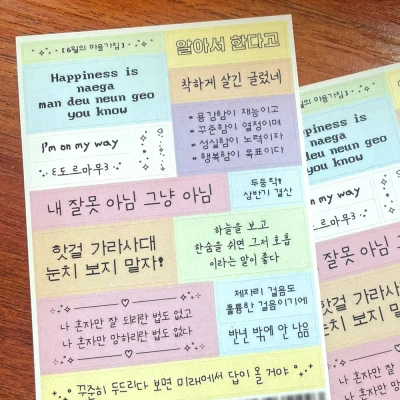 [6월의 마음가짐]
알아서 한다고
Happiness is
naega
man deu neun geo
you know
착하게 살긴 글렀네
* 용감함이 재능이고
* 꾸준함이 열정이며
* 성실함이 노력이자
* 행복함이 목표이다
I'm on my way
도르마무
내 잘못 아님 그냥 아님
두둥탁!
상반기 결산
핫걸 가라사대
눈치 보지 말자!
하늘을 보고
한숨을 쉬면 그저 호흡
이라는 말이 좋다
나 혼자만 잘 되리란 법도 없고
나 혼자만 망하리란 법도 없다
제자리 걸음도
훌륭한 걸음이기에
반년 밖에 안 나음
꾸준히 두드리다 보면 미래에서 답이 올 거야
6월의 마음가짐]
piness is
naega
deu neun geo
ou know
on my way
도르마무
잘못 아님
핫걸 가라사대
눈치 보지 말자
나 혼자만 잘